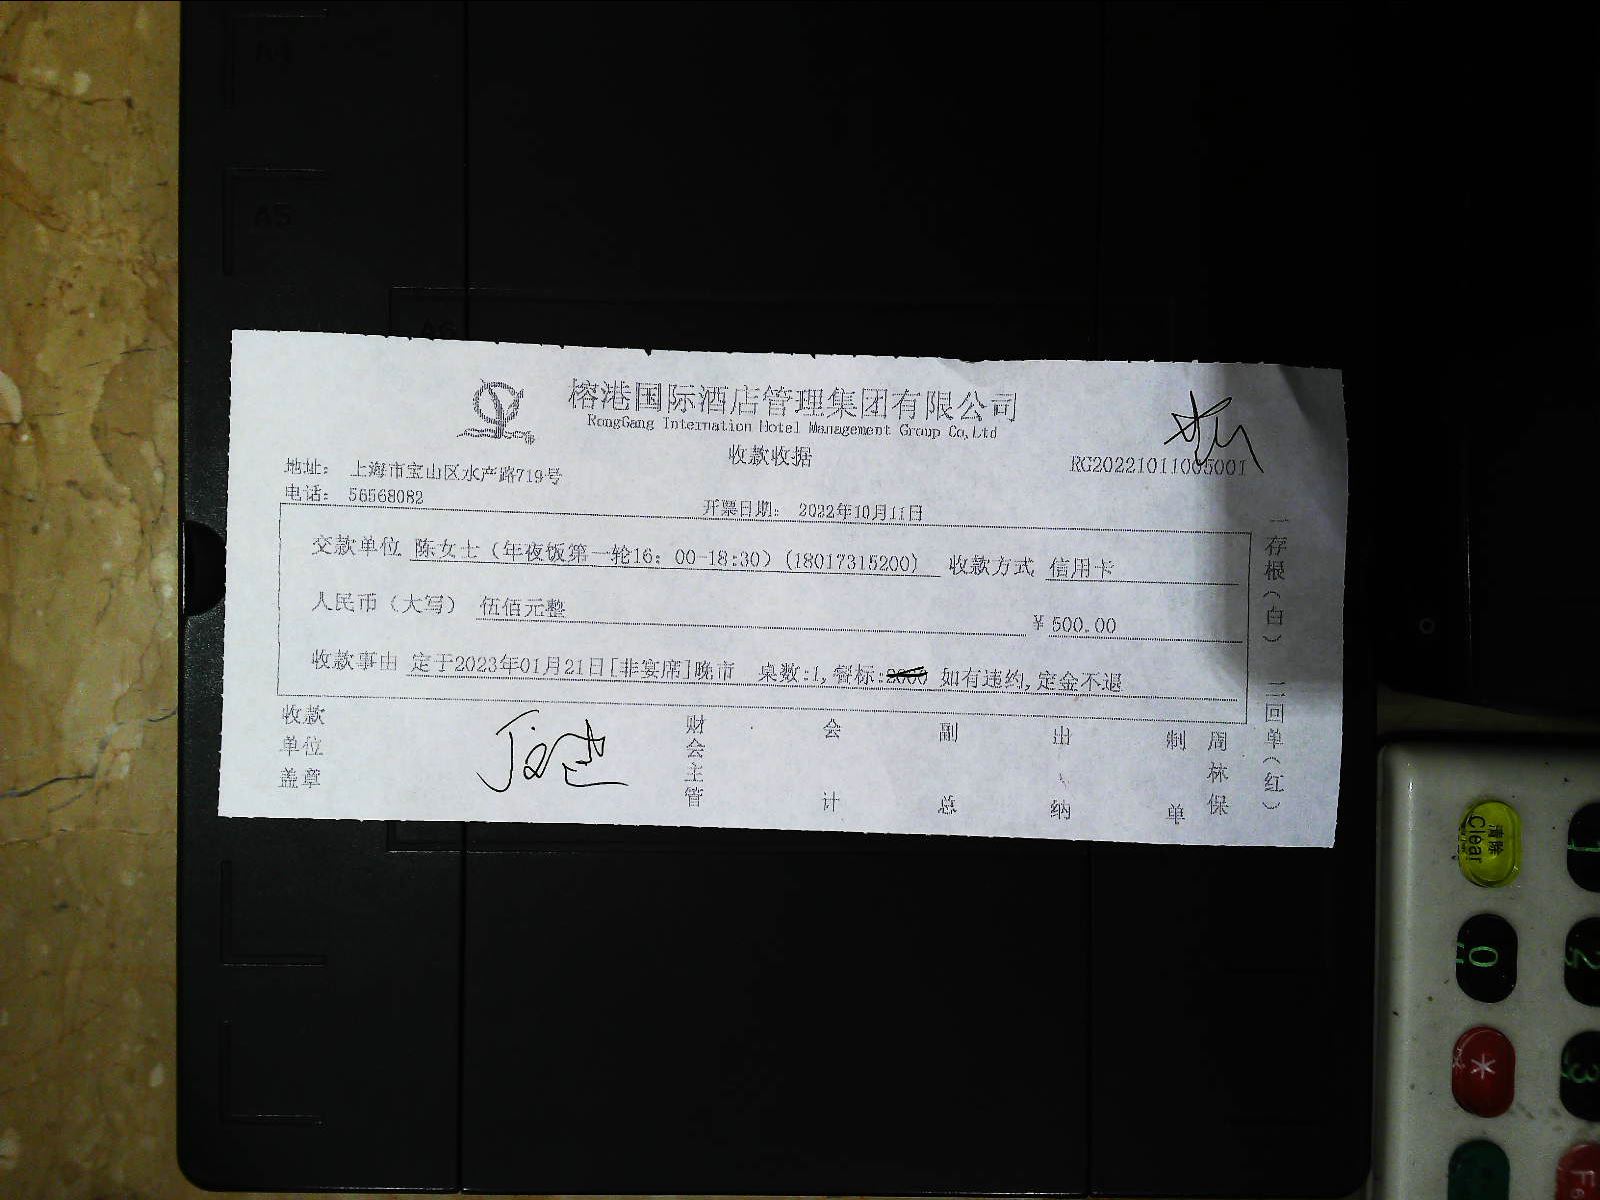 榕港国际酒店管理集团有限公司
RongGang Internation Hotel Management Group Co,Ltd
收款收据
地址： 上海市宝山区水产路719号
RG20221011005001
电话： 56568082
开票日期： 2022年10月11日
交款单位 陈女士（年夜饭第一轮16：00-18:30）(18017315200) 收款方式 信用卡
人民币（大写） 伍佰元整 ￥500.00
收款事由 定于2023年01月21日[非宴席]晚市 桌数:1,餐标: 如有违约,定金不退
收款单位盖章
财会主管
会计
副总
出纳
制单
周林保
一存根（白）
二回单（红）
A4
A5
A6
清除
Clear
0
1
2
3
*